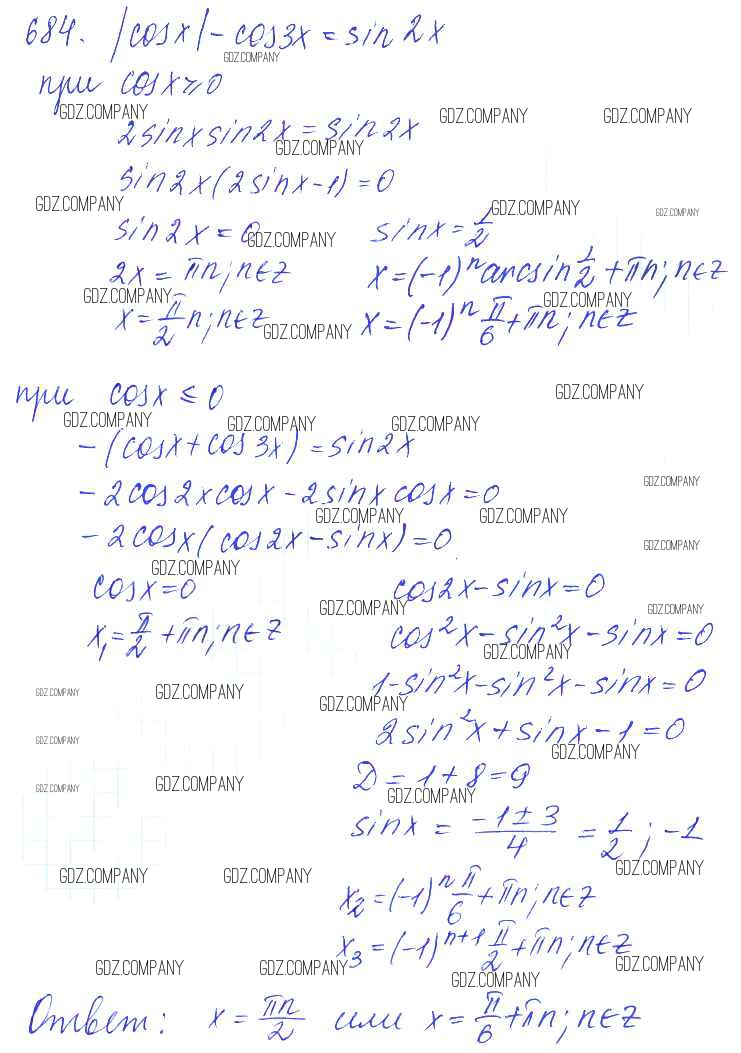 684. |cos x| - cos 3x = sin 2x
GDZ.COMPANY
при cos x ≥ 0
GDZ.COMPANY GDZ.COMPANY GDZ.COMPANY
2 sin x sin 2x = sin 2x
GDZ.COMPANY
sin 2x (2 sin x - 1) = 0
GDZ.COMPANY GDZ.COMPANY GDZ.COMPANY
sin 2x = 0 sin x = 1/2
GDZ.COMPANY
2x = πn; n ∈ Z x = (-1)^n arcsin 1/2 + πn; n ∈ Z
GDZ.COMPANY GDZ.COMPANY
x = π/2 n; n ∈ Z x = (-1)^n π/6 + πn; n ∈ Z
GDZ.COMPANY
при cos x ≤ 0
GDZ.COMPANY
GDZ.COMPANY GDZ.COMPANY GDZ.COMPANY
- (cos x + cos 3x) = sin 2x
GDZ.COMPANY
- 2 cos 2x cos x - 2 sin x cos x = 0
GDZ.COMPANY GDZ.COMPANY
- 2 cos x (cos 2x - sin x) = 0
GDZ.COMPANY
GDZ.COMPANY
cos x = 0 cos 2x - sin x = 0
GDZ.COMPANY GDZ.COMPANY
x₁ = π/2 + πn; n ∈ Z cos²x - sin²x - sin x = 0
GDZ.COMPANY
1 - sin²x - sin²x - sin x = 0
GDZ.COMPANY GDZ.COMPANY GDZ.COMPANY
2 sin²x + sin x - 1 = 0
GDZ.COMPANY GDZ.COMPANY
D = 1 + 8 = 9
GDZ.COMPANY GDZ.COMPANY GDZ.COMPANY
sin x = (-1 ± 3)/4 = 1/2; -1
GDZ.COMPANY GDZ.COMPANY GDZ.COMPANY
x₂ = (-1)^n π/6 + πn; n ∈ Z
x₃ = (-1)^(n+1) π/2 + πn; n ∈ Z
GDZ.COMPANY GDZ.COMPANY GDZ.COMPANY
GDZ.COMPANY
Ответ: x = πn/2 или x = π/6 + πn; n ∈ Z